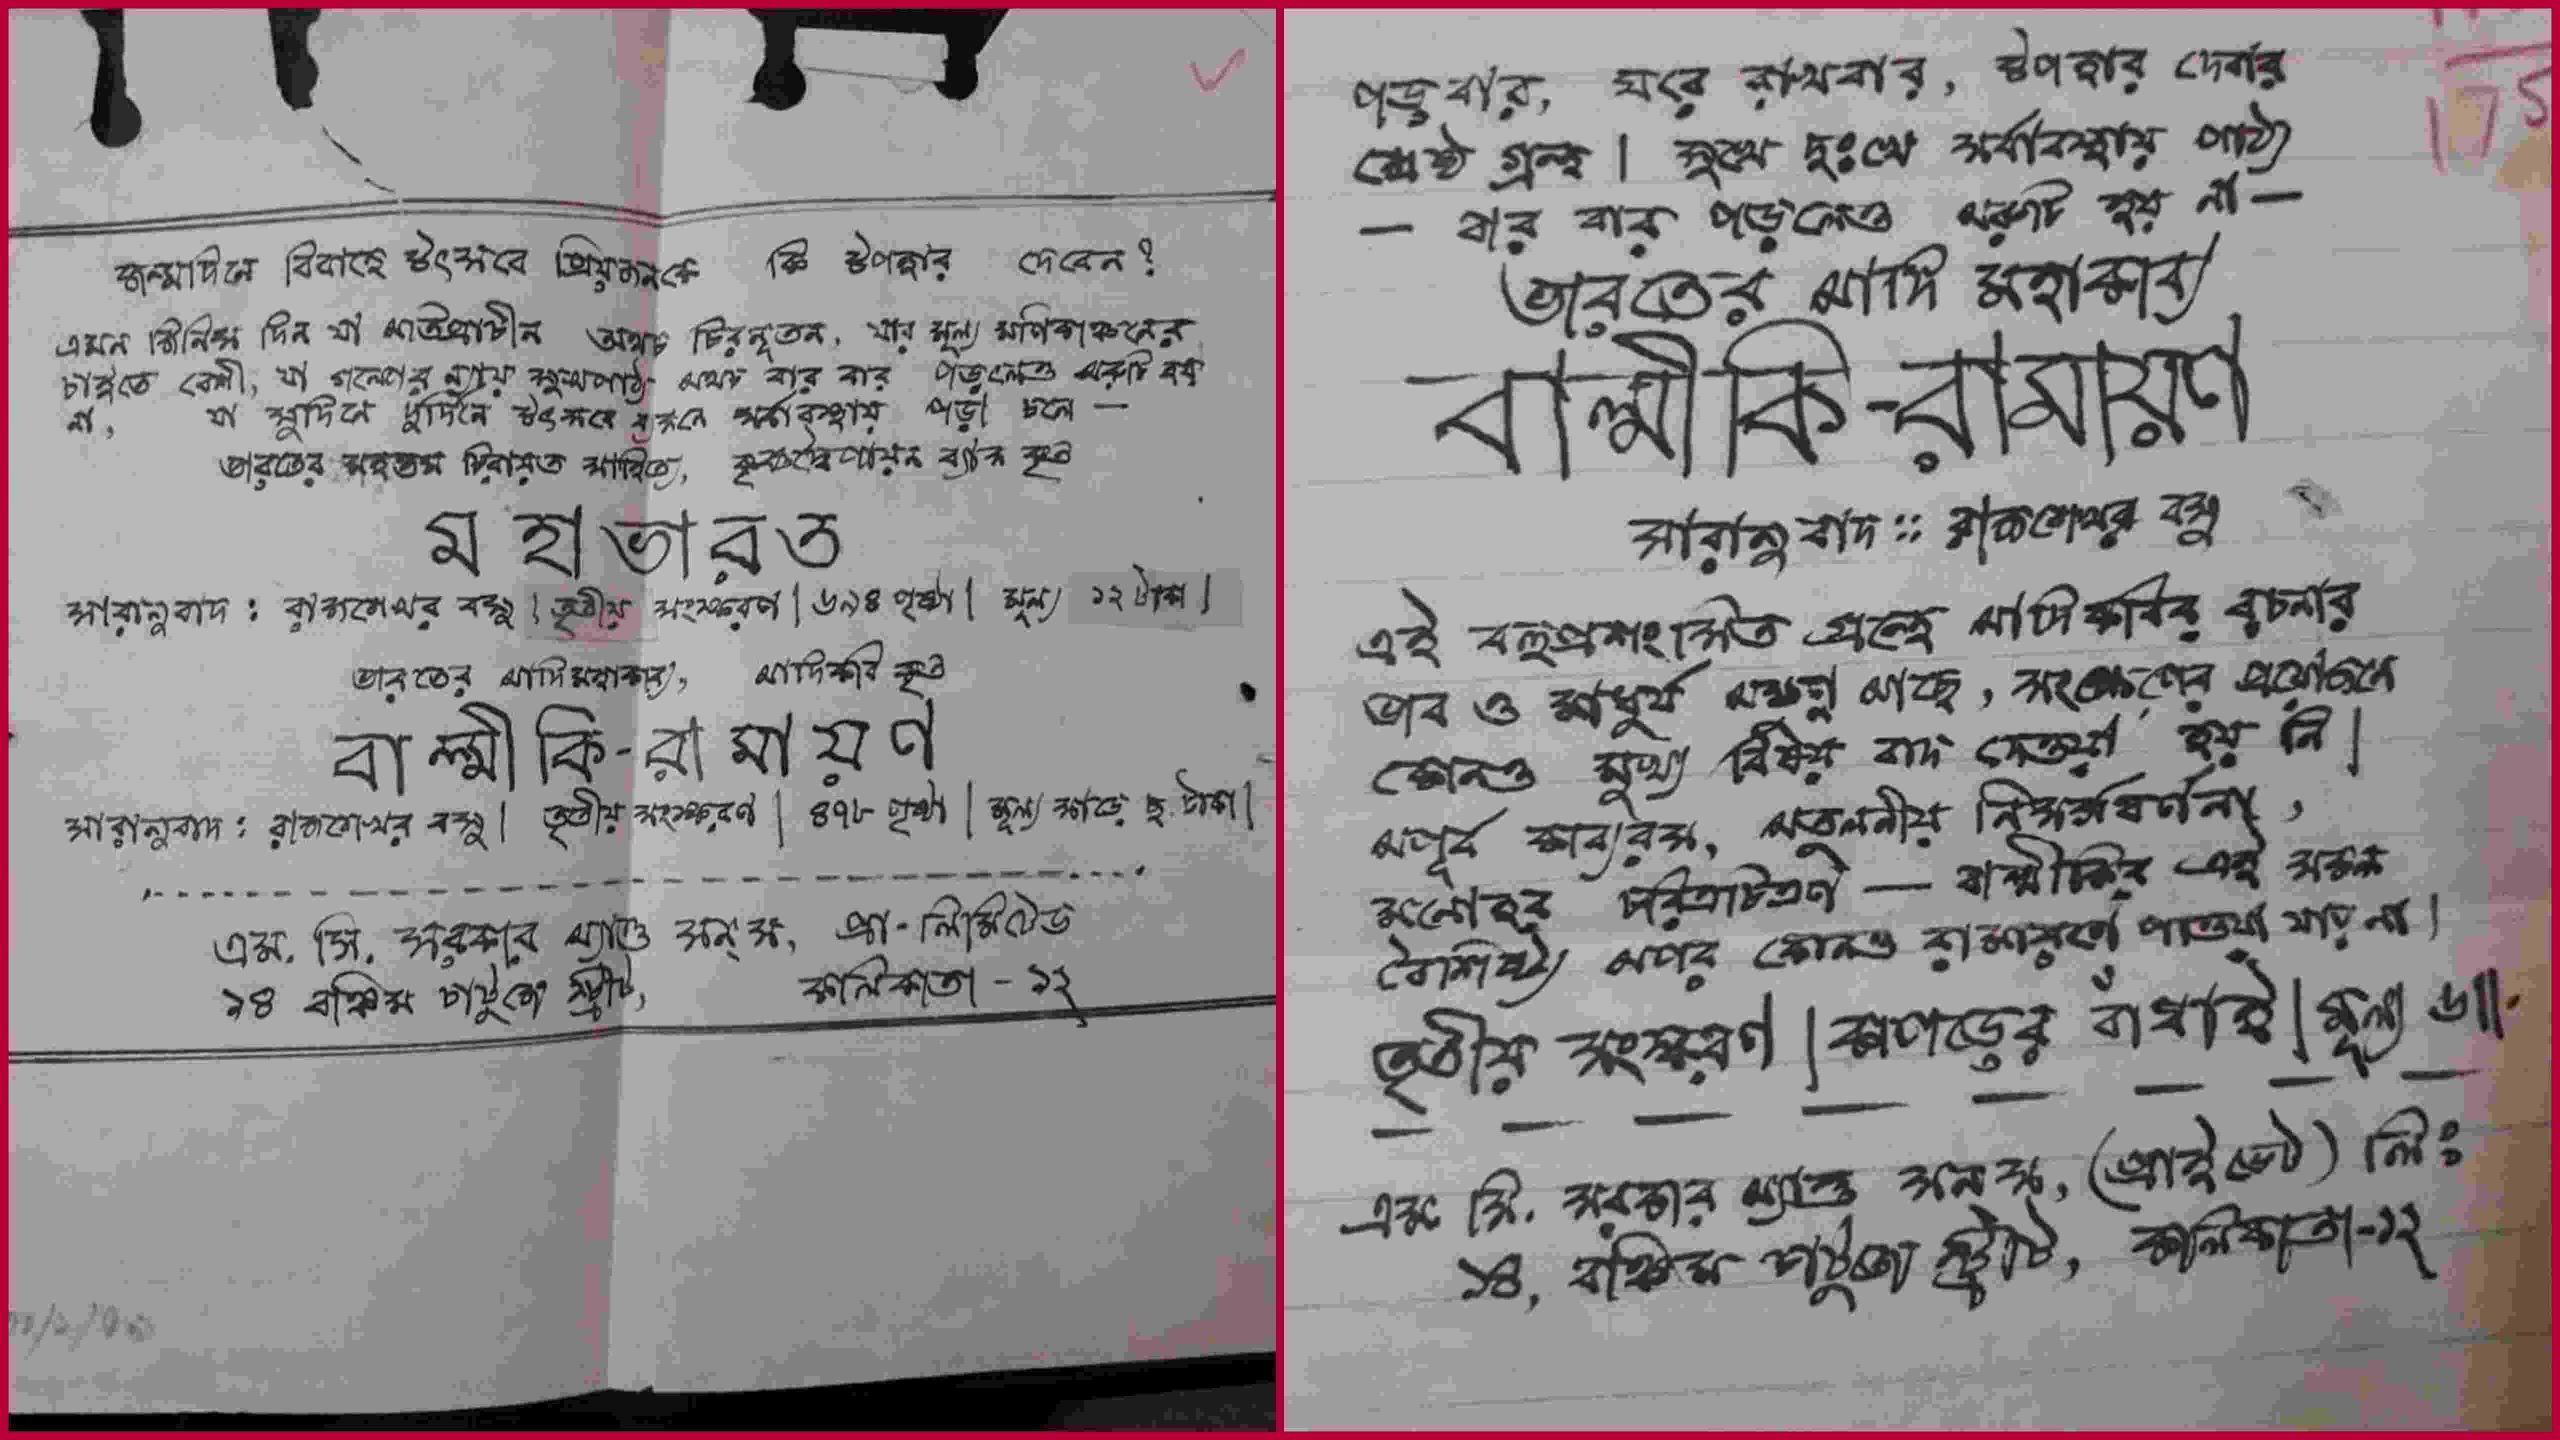 জন্মদিনে বিবাহে উৎসবে প্রিয়জনকে কি উপহার দেবেন?
এমন জিনিস দিন যা অতিপ্রাচীন অথচ চিরনূতন, যার মূল্য মণিকাঞ্চনের
চাইতে বেশী, যা গল্পের ন্যায় সুখপাঠ্য অথচ বার বার পড়লেও অরুচি হয়
না, যা সুদিনে দুর্দিনে উৎসবে ব্যসনে সর্বাবস্থায় পড়া চলে —
ভারতের মহত্তম চিরায়ত সাহিত্য, কৃষ্ণদ্বৈপায়ন ব্যাস কৃত
মহাভারত
সারানুবাদ : রাজশেখর বসু। তৃতীয় সংস্করণ। ৬৯৪ পৃষ্ঠা। মূল্য ১২ টাকা।
ভারতের আদিমহাকাব্য, আদিকবি কৃত
বাল্মীকি-রামায়ণ
সারানুবাদ : রাজশেখর বসু। তৃতীয় সংস্করণ। ৪৭৮ পৃষ্ঠা। মূল্য সাড়ে ছ টাকা।
এম. সি. সরকার অ্যান্ড সন্স, প্রা-লিমিটেড
১৪ বঙ্কিম চাটুজ্যে স্ট্রীট, কলিকাতা - ১২
পড়বার, ঘরে রাখবার, উপহার দেবার
শ্রেষ্ঠ গ্রন্থ। সুখে দুঃখে সর্বাবস্থায় পাঠ্য
— বার বার পড়লেও অরুচি হয় না —
ভারতের আদি মহাকাব্য
বাল্মীকি-রামায়ণ
সারানুবাদ :: রাজশেখর বসু
এই বহুপ্রশংসিত গ্রন্থে আদিকবির রচনার
ভাব ও মাধুর্য অক্ষুণ্ণ আছে, সংক্ষেপের প্রয়োজনে
কোনও মুখ্য বিষয় বাদ দেওয়া হয় নি।
অপূর্ব কাব্যরস, অতুলনীয় নিসর্গবর্ণনা,
মনোহর চরিত্রচিত্রণ — বাল্মীকির এই সকল
বৈশিষ্ট্য অপর কোনও রামায়ণে পাওয়া যায় না।
তৃতীয় সংস্করণ। কাপড়ের বাঁধাই। মূল্য ৬॥.
এম সি. সরকার অ্যান্ড সনস, (প্রাইভেট) লিঃ
১৪, বঙ্কিম চাটুজ্যে স্ট্রীট, কলিকাতা-১২
175